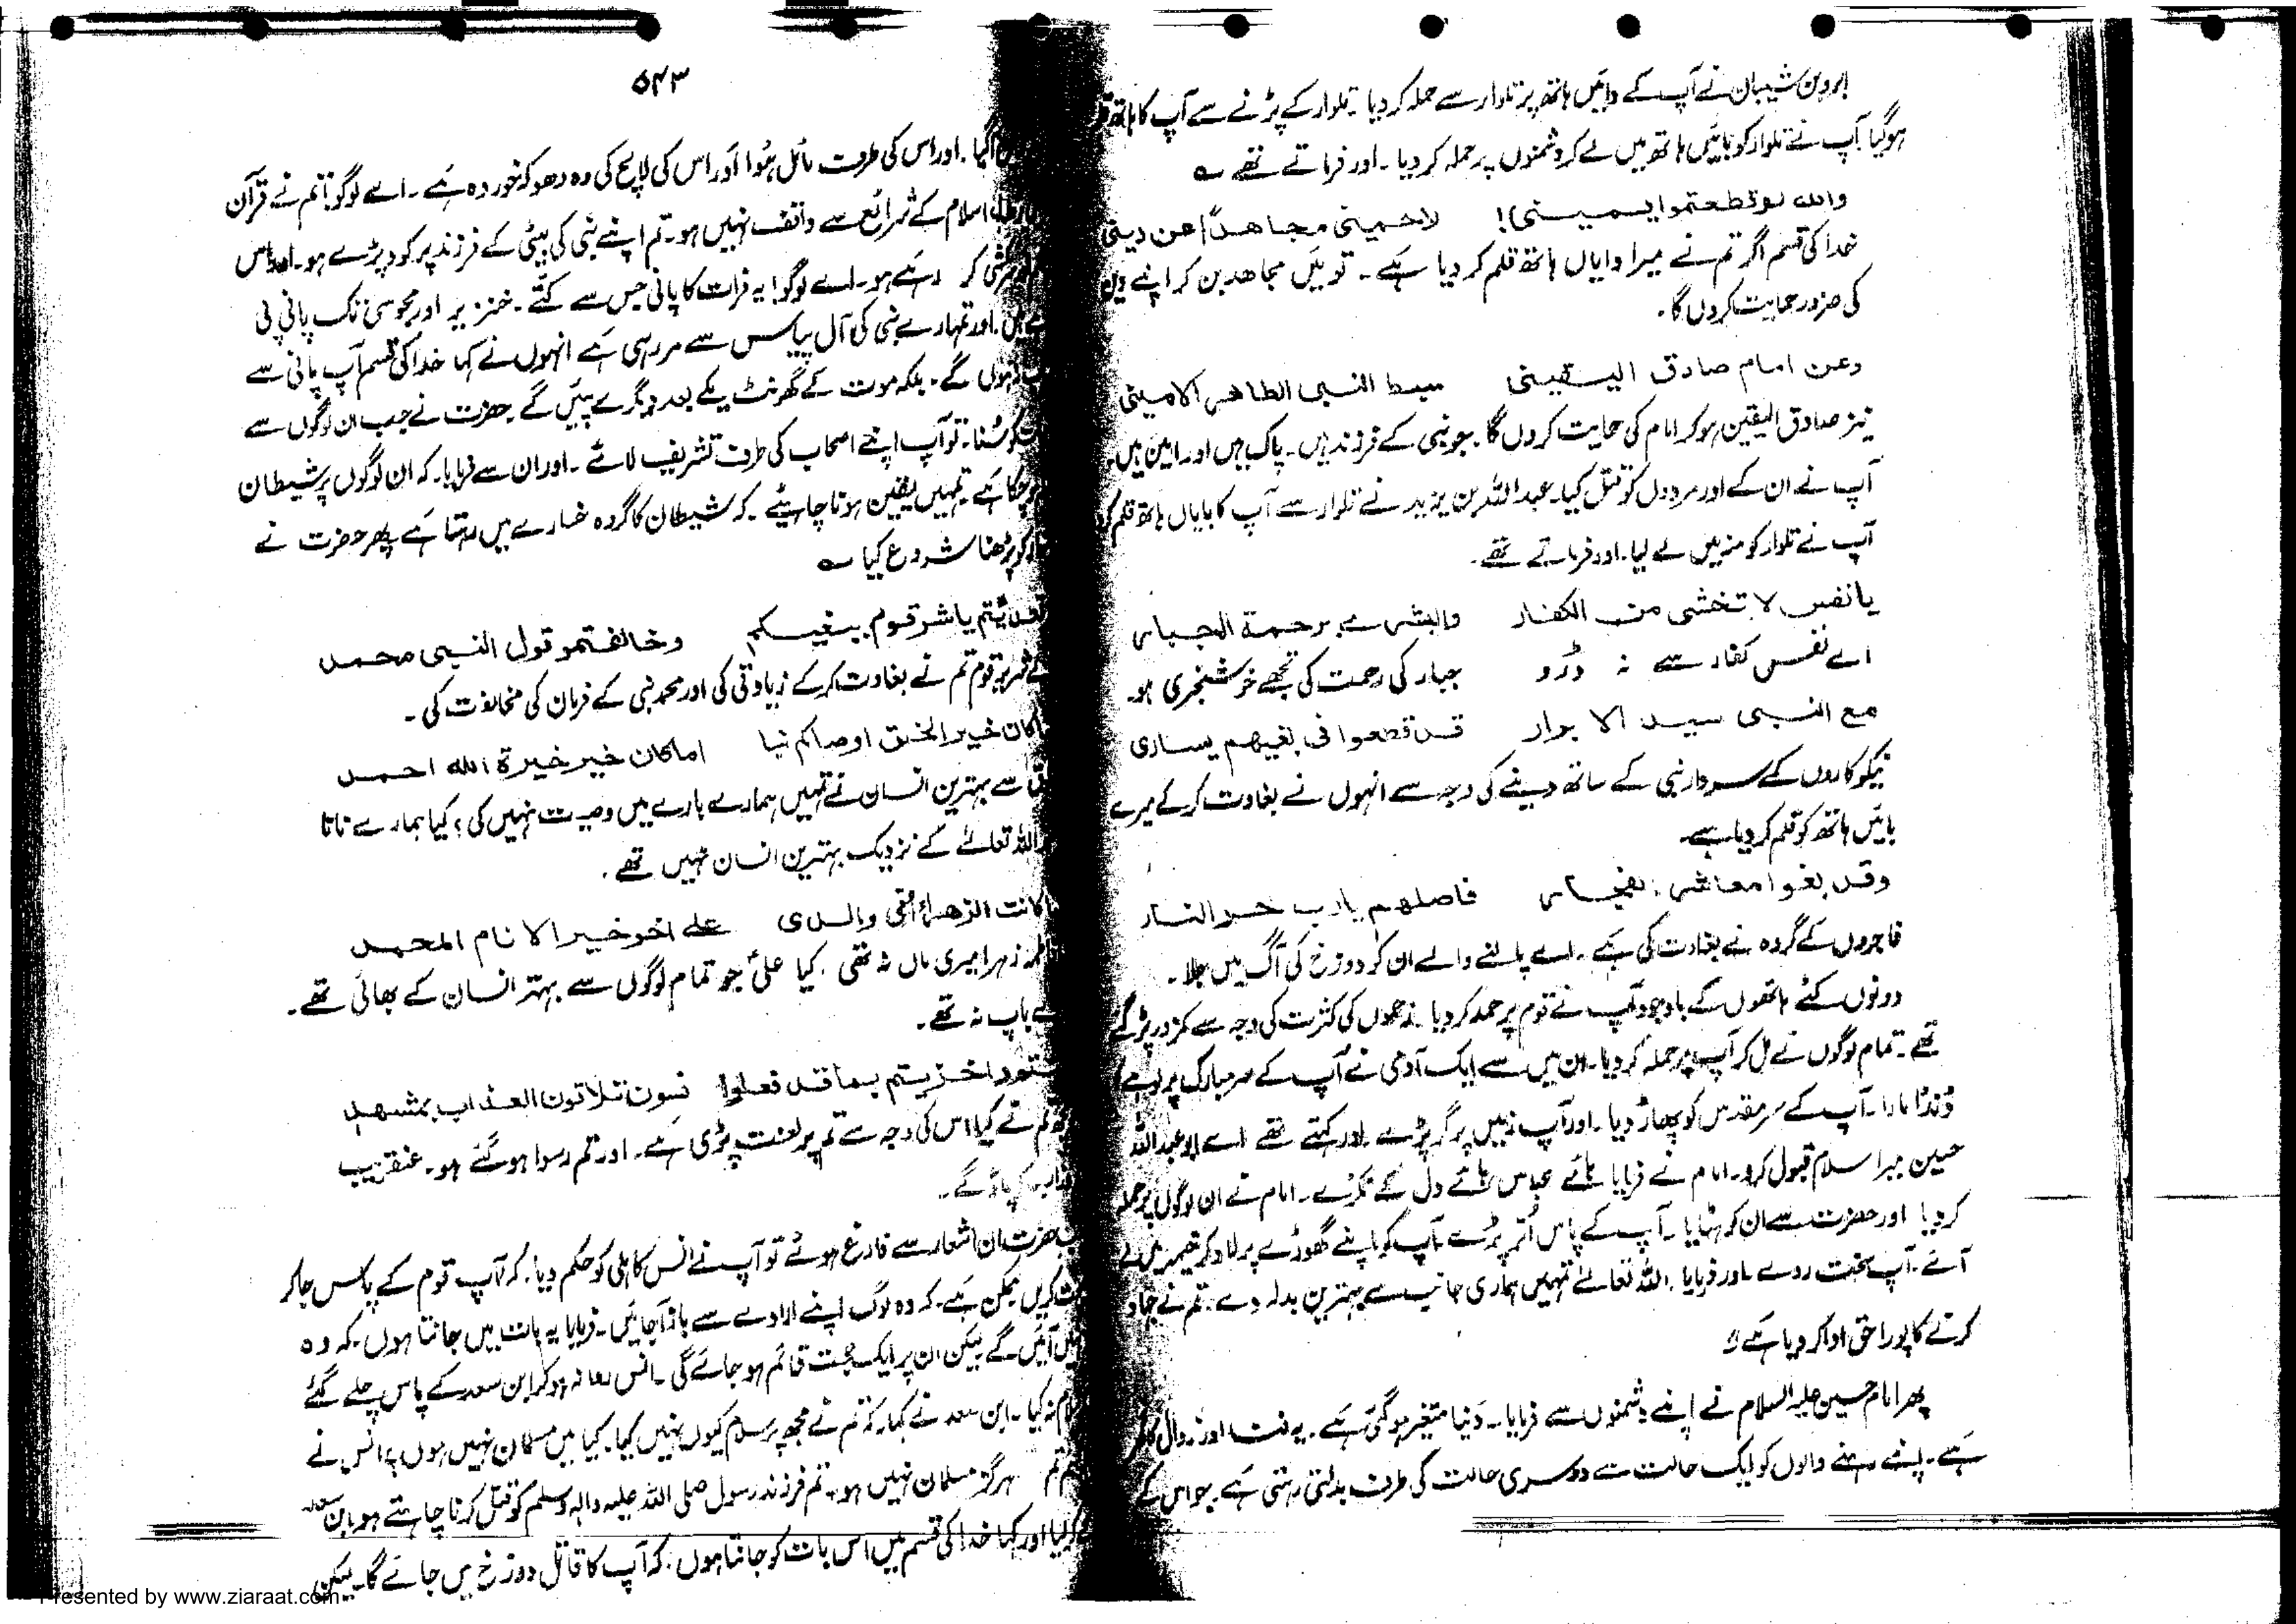 ابروبن شیبان نے آپ کے دائیں ہاتھ پر تلوار سے حملہ کر دیا ۔ تلوار کے پڑنے سے آپ کا ہاتھ
ہو گیا آپ نے تلوار کو بائیں ہاتھ میں لے کر دشمنوں پر حملہ کر دیا ۔ اور فرماتے تھے ؎
والله لوقطعتموا یمیـنی! لاحمینی مجاهداً عن دینی
خدا کی قسم اگر تم نے میرا دایاں ہاتھ قلم کر دیا ہے ۔ تو میں مجاھد بن کر اپنے دین
کی ضرور حمایت کروں گا۔
وعن امام صادق الیـقینی سبط النبی الطاهر الامینی
نیز صادق الیقین ہو کر امام کی حمایت کروں گا۔ جو نبی کے فرزند ہیں ۔ پاک ہیں اور امین ہیں
آپ نے ان کے اور مردوں کو قتل کیا۔ عبداللہ بن یزید نے تلوار سے آپ کا بایاں ہاتھ قلم کر
آپ نے تلوار کو منہ میں لے لیا۔ اور فرماتے تھے ۔
یانفس لا تخشی من الکفار وابشری برحمة الجبار
اے نفس کفار سے نہ ڈرو جبار کی رحمت کی تجھے خوشخبری ہو۔
مع النبی سید الا برار قد قطعوا فی بغیهم یساری
نیکوکاروں کے سردار نبی کے ساتھ دینے کی وجہ سے انہوں نے بغاوت کر کے میرے
بائیں ہاتھ کو قلم کر دیا ہے۔
وقد بغوا معاشر الفجار فاصلهم یارب حر النار
فاجروں کے گروہ نے بغاوت کی ہے ۔ اسے پالنے والے ان کو دوزخ کی آگ میں جلا ۔
دونوں کٹے ہاتھوں کے باوجود آپ نے قوم پر حملہ کر دیا ۔ زخموں کی کثرت کی وجہ سے کمزور پڑ گئے
تھے ۔ تمام لوگوں نے مل کر آپ پر حملہ کر دیا ۔ ان میں سے ایک آدمی نے آپ کے سر مبارک پر لوہے
ڈنڈا مارا ۔ آپ کے سر مقدس کو پھاڑ دیا ۔ اور آپ زمین پر گر پڑے اور کہتے تھے اے ابو عبداللہ
حسین میرا سلام قبول کرو۔ امام نے فرمایا ہائے عباس ہائے دل کے ٹکڑے ۔ امام نے ان لوگوں پر حملہ
کر دیا اور حضرت سے ان کو ہٹایا ۔ آپ کے پاس اُتر پڑے آپ کو اپنے گھوڑے پر لاد کر خیمہ میں لے
آئے ۔ آپ سخت روئے اور فرمایا ۔ اللہ تعالےٰ تمہیں ہماری جانب سے بہترین بدلہ دے ۔ تم نے جہاد
کرنے کا پورا حق ادا کر دیا ہے۔
پھر امام حسین علیہ السلام نے اپنے دشمنوں سے فرمایا ۔ دنیا متغیر ہو گئی ہے ۔ یہ فنا اور زوال
ہے ۔ اپنے رہنے والوں کو ایک حالت سے دوسری حالت کی طرف بدلتی رہتی ہے ۔ جو اس کے
۵۴۳
گیا ۔ اور اس کی طرف مائل ہُوا اور اس کی لالچ کی وہ دھوکہ خوردہ ہے ۔ اے لوگو! تم نے قرآن
اسلام کے شرائع سے واقف نہیں ہو ۔ تم اپنے نبی کی بیٹی کے فرزند پر کود پڑے ہو ۔ اور اس
کر رہے ہو ۔ اے لوگو! یہ فرات کا پانی جس سے کتّے ۔ خنزیر اور مجوسی تک پانی پی
ہیں ۔ اور تمہارے نبی کی آل پیاس سے مر رہی ہے انہوں نے کہا خدا کی قسم آپ پانی سے
ہوں گے ۔ بلکہ موت کے گھونٹ یکے بعد دیگرے پئیں گے ۔ حضرت نے جب ان لوگوں سے
کو سُنا ۔ تو آپ اپنے اصحاب کی طرف تشریف لائے ۔ اور ان سے فرمایا ۔ کہ ان لوگوں پر شیطان
چکا ہے تمہیں یقین ہونا چاہیئے ۔ کہ شیطان کا گروہ خسارے میں رہتا ہے پھر حضرت نے
کو پڑھنا شروع کیا ؎
یا شر قوم ببغیـکم وخالفتموا قول النـبی محمـد
قوم تم نے بغاوت کر کے زیادتی کی اور محمد نبی کے فرمان کی مخالفت کی ۔
کان خیر الخلق اوصاکم بنا اماکان خیر خیرة الله احمـد
سے بہترین انسان نے تمہیں ہمارے بارے میں وصیت نہیں کی ؟ کیا ہمارے نانا
اللہ تعالےٰ کے نزدیک بہترین انسان نہیں تھے ۔
کانت الزهراء امّی والـدی علی اخو خیر الا نام المحمـد
زہرا میری ماں نہ تھی ۔ کیا علیؑ جو تمام لوگوں سے بہتر انسان کے بھائی تھے ۔
باپ نہ تھے ۔
اخزیتم بما قد فعلوا فسوف تلاقون العذاب بمشهد
تم نے کیا اس کی وجہ سے تم پر لعنت پڑی ہے ۔ اور تم رسوا ہو گئے ہو ۔ عنقریب
پاؤ گے ۔
حضرت ان اشعار سے فارغ ہوئے تو آپ نے انس کاہلی کو حکم دیا ۔ کہ آپ قوم کے پاس جا کر
کریں ممکن ہے ۔ کہ وہ لوگ اپنے ارادے سے باز آ جائیں ۔ فرمایا یہ بات میں جانتا ہوں ۔ کہ وہ
نہیں آئیں گے لیکن ان پر ایک حجت قائم ہو جائے گی ۔ انس روانہ ہو کر ابن سعد کے پاس چلے گئے
نہ کیا ۔ ابن سعد نے کہا ۔ کہ تم نے مجھ پر سلام کیوں نہیں کیا ۔ کیا میں مسلمان نہیں ہوں ؟ انس نے
تم ہرگز مسلمان نہیں ہو ۔ تم فرزند رسول صلی اللہ علیہ والہ وسلم کو قتل کرنا چاہتے ہو ۔ ابن سعد
کر لیا اور کہا خدا کی قسم میں اس بات کو جانتا ہوں ۔ کہ آپ کا قاتل دوزخ میں جائے گا ۔ لیکن
Presented by www.ziaraat.com